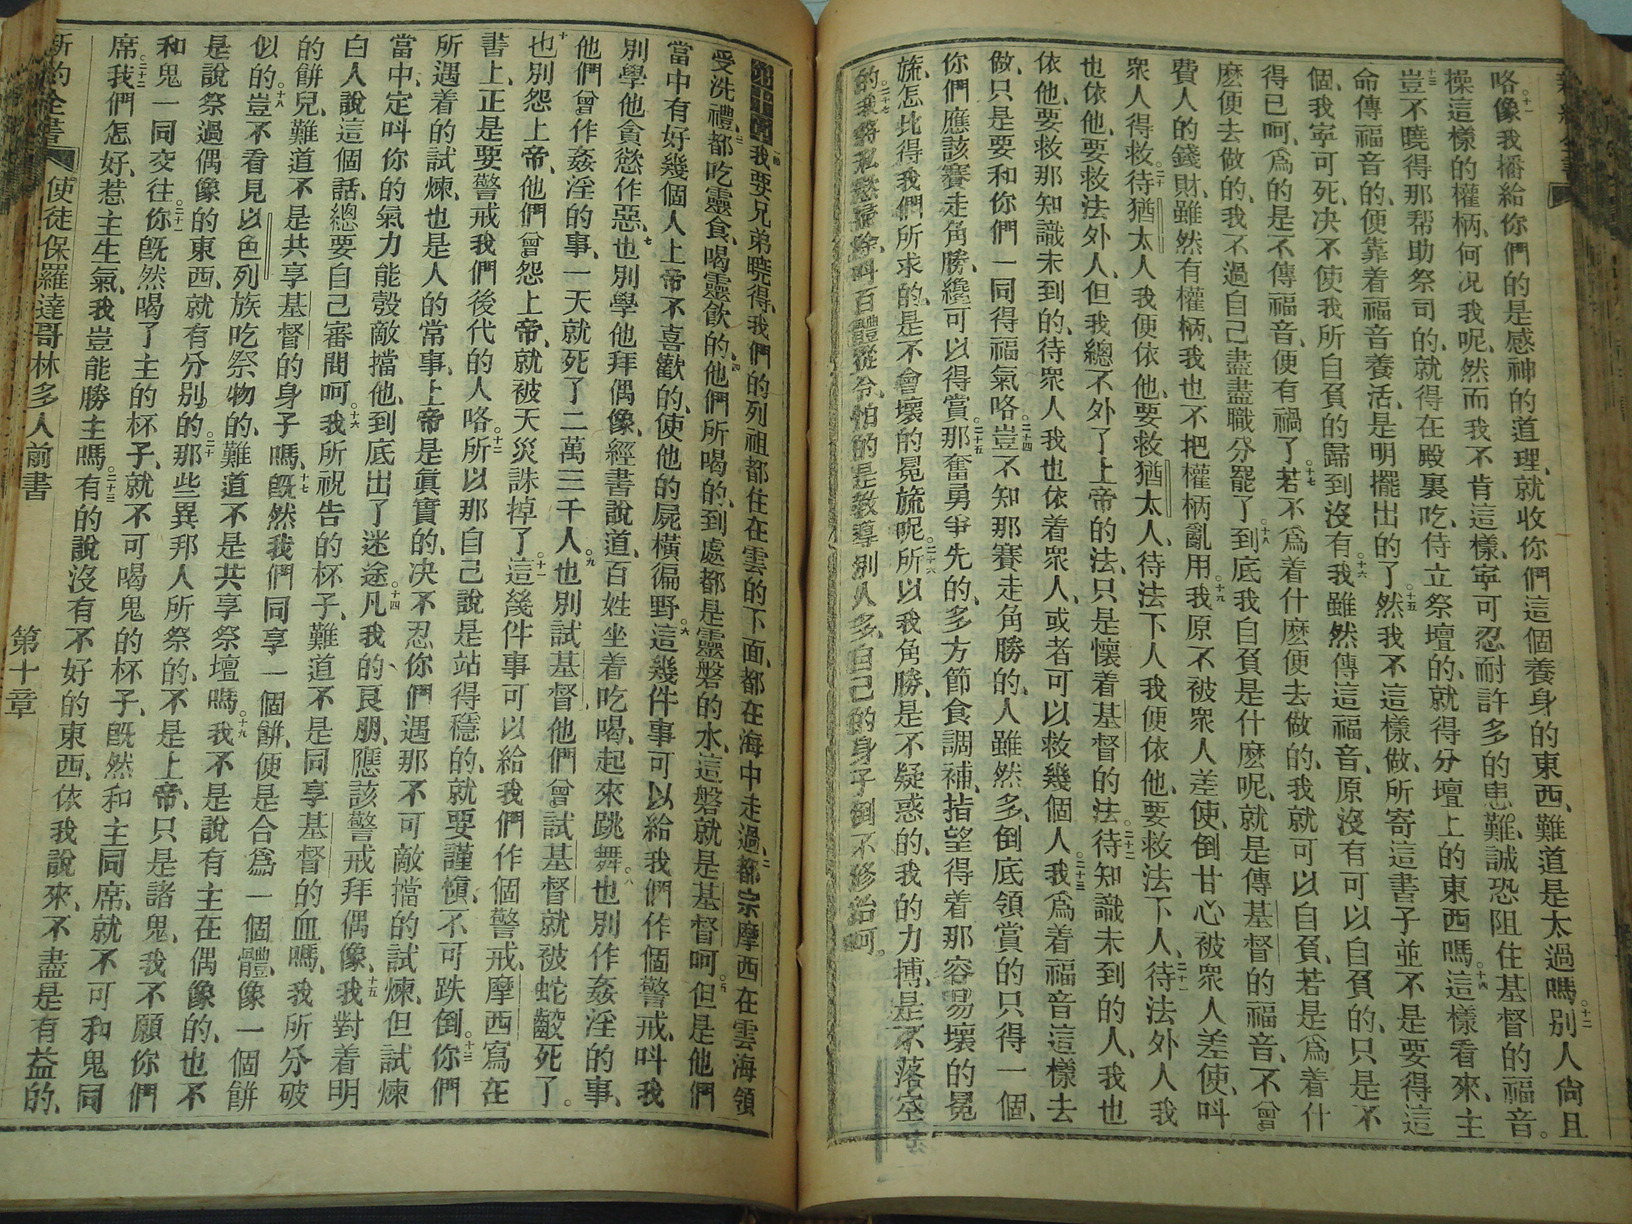 咯像我播給你們的是感神的道理、就收你們這個養身的東西、難道是太過嗎。十二別人尙且
操這樣的權柄、何况我呢、然而我不肯這樣、寧可忍耐許多的患難、誠恐阻住基督的福音。
十三豈不曉得那帮助祭司的、就得在殿裏吃、侍立祭壇的、就得分壇上的東西嗎。十四這樣看來、主
命傳福音的、便靠着福音養活、是明擺出的了。十五然我不這樣做、所寄這書子、並不是要得這
個、我寧可死、决不使我所自負的歸到沒有。十六我雖然傳這福音、原沒有可以自負的、只是不
得已呵、爲的是不傳福音、便有禍了。十七若不爲着什麽便去做的、我就可以自負、若是爲着什
麽便去做的、我不過自己盡盡職分罷了。十八到底我自負是什麽呢、就是傳基督的福音、不曾
費人的錢財、雖然有權柄、我也不把權柄亂用。十九我原不被衆人差使、倒甘心被衆人差使、呌
衆人得救。二十待猶太人、我便依他、要救猶太人、待法下人、我便依他、要救法下人、二十一待法外人、我
也依他、要救法外人、但我總不外了上帝的法、只是懷着基督的法。二十二待知識未到的人、我也
依他、要救那知識未到的、待衆人、我也依着衆人、或者可以救幾個人。二十三我爲着福音這樣去
做、只是要和你們一同得福氣咯。二十四豈不知那賽走角勝的、人雖然多、倒底領賞的只得一個、
你們應該賽走角勝、纔可以得賞。二十五那奮勇爭先的、多方節食調補、指望得着那容易壞的冕
旒、怎比得我們所求的、是不會壞的冕旒呢。二十六所以我角勝、是不疑惑的、我的力搏、是不落空
的。二十七
第十章 一我要兄弟曉得、我們的列祖都住在雲的下面、都在海中走過、二都宗摩西在雲海領
受洗禮、三都吃靈食、喝靈飲的、四他們所喝的、到處都是靈磐的水、這磐就是基督呵。五但是他們
當中有好幾個人、上帝不喜歡的、使他的屍橫徧野。六這幾件事可以給我們作個警戒、呌我
別學他貪慾作惡、七也別學他拜偶像、經書說道、百姓坐着吃喝、起來跳舞。八也別作姦淫的事、
他們曾作姦淫的事、一天就死了二萬三千人。九也別試基督、他們曾試基督、就被蛇齩死了。
十也別怨上帝、他們曾怨上帝、就被天災誅掉了。十一這幾件事可以給我們作個警戒、摩西寫在
書上、正是要警戒我們後代的人咯。十二所以那自己說是站得穩的、就要謹愼、不可跌倒。十三你們
所遇着的試煉、也是人的常事、上帝是眞實的、决不忍你們遇那不可敵擋的試煉、但試煉
當中、定呌你的氣力能彀敵擋他、到底出了迷途。十四凡我的良朋、應該警戒拜偶像、十五我對着明
白人說這個話、總要自己審問呵。十六我所祝告的杯子、難道不是同享基督的血嗎、我所分破
的餅兒、難道不是共享基督的身子嗎、十七旣然我們同享一個餅、便是合爲一個體、像一個餅
似的。十八豈不看見以色列族吃祭物的、難道不是共享祭壇嗎。十九我不是說有主在偶像的、也不
是說祭過偶像的東西、就有分別的。二十那些異邦人所祭的、不是上帝、只是諸鬼、我不願你們
和鬼一同交往。二十一你旣然喝了主的杯子、就不可喝鬼的杯子、旣然和主同席、就不可和鬼同
席。二十二我們怎好惹主生氣、我豈能勝主嗎。二十三有的說沒有不好的東西、依我說來、不盡是有益的、
新約全書 使徒保羅達哥林多人前書 第十章